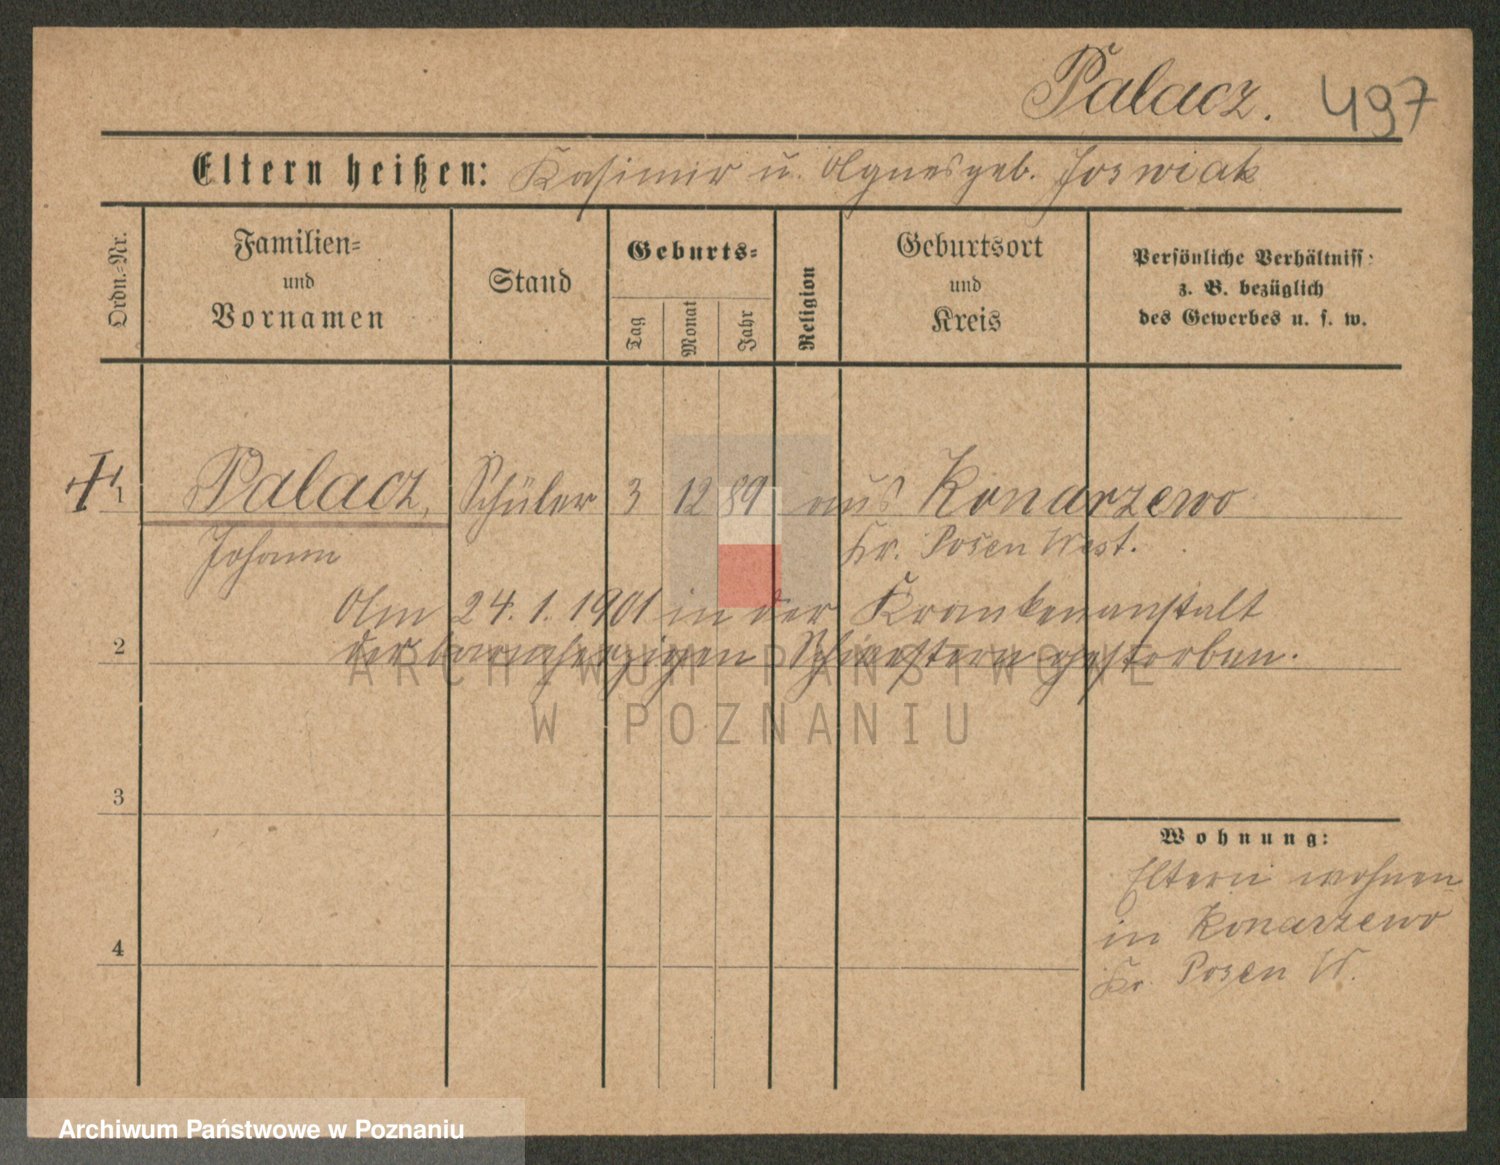 Palacz. 497
Eltern heißen: Kasimir u. Agnes geb. Joswiak
Ordn.-Nr.
Familien-
und
Vornamen
Stand
Geburts-
Tag
Monat
Jahr
Religion
Geburtsort
und
Kreis
Persönliche Verhältniss:
z. B. bezüglich
des Gewerbes u. s. w.
1 Palacz, Schüler 3 12 89 aus Konarzewo
Johann Kr. Posen West.
Am 24.1.1901 in der Krankenanstalt
2 der barmherzigen Schwestern gestorben.
ARCHIWUM PAŃSTWOWE
W POZNANIU
3
Wohnung:
Eltern wohnen
in Konarzewo
4 Kr. Posen W.
Archiwum Państwowe w Poznaniu